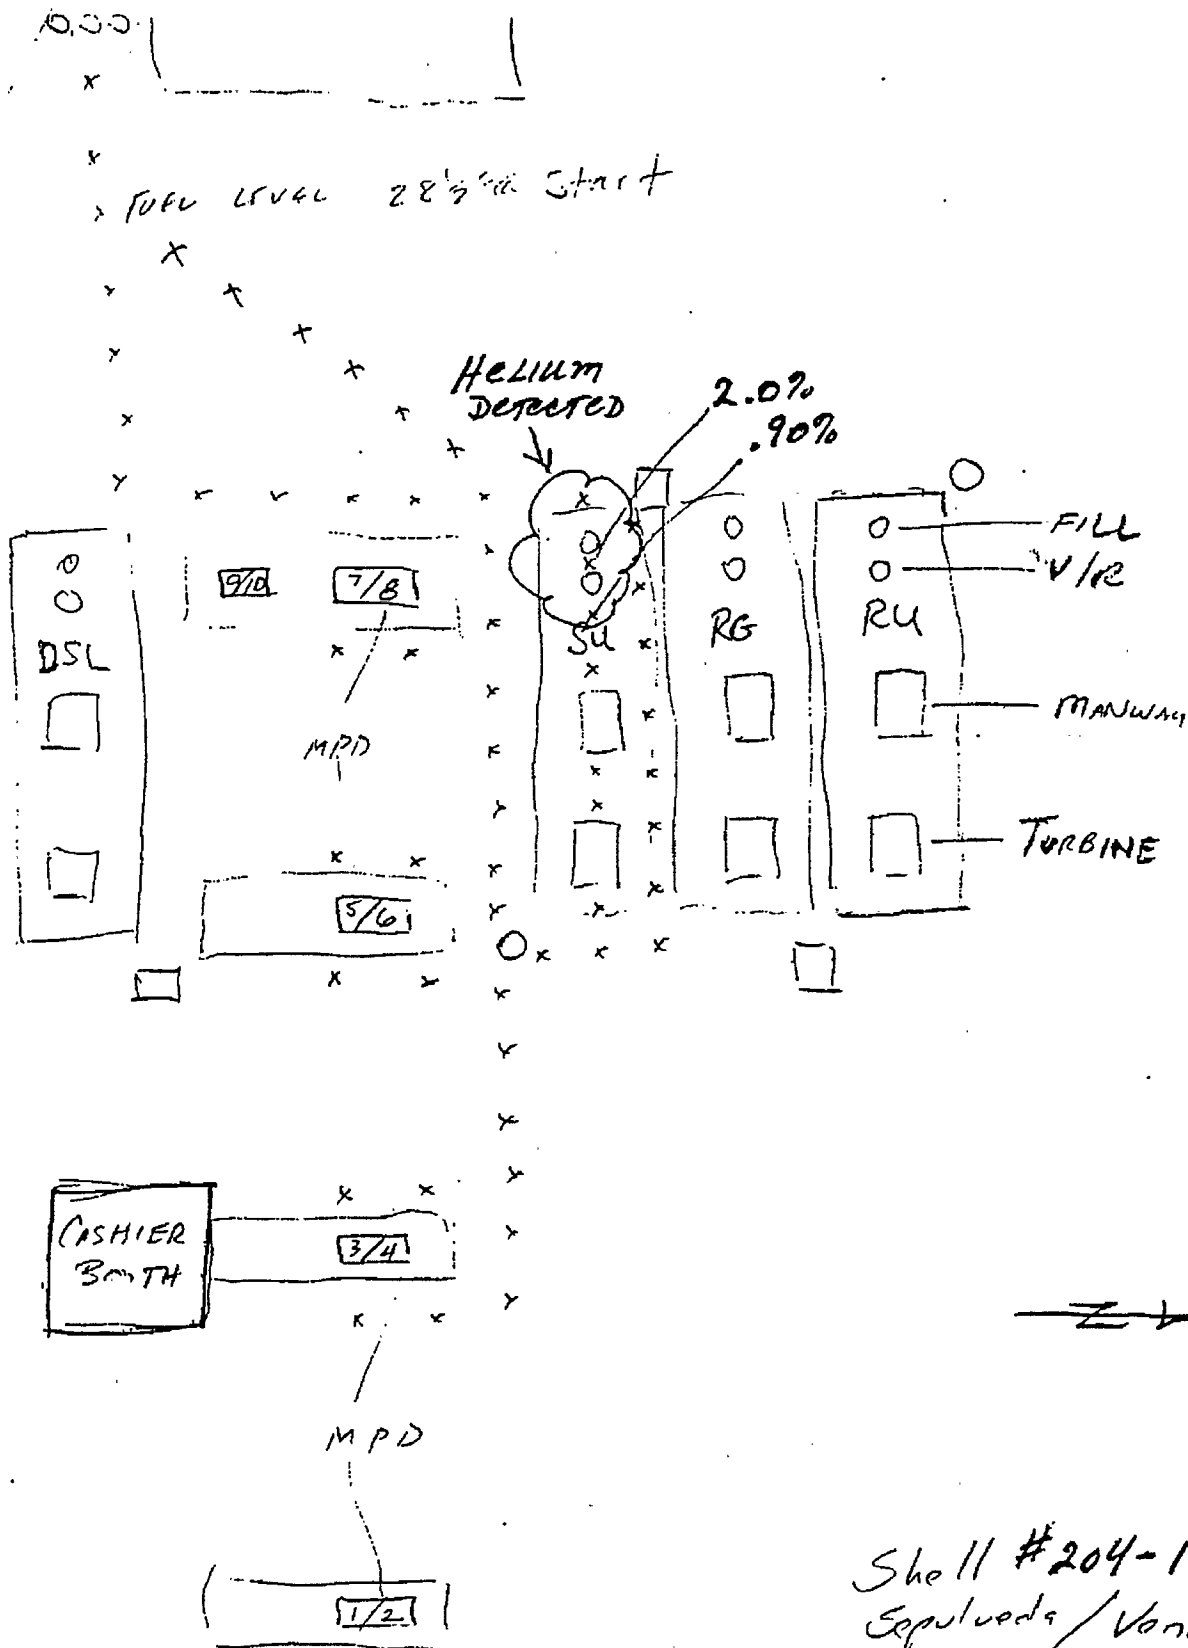 10,000
FUEL LEVEL Start
HELIUM
DETECTED
2.0%
.90%
FILL
V/R
9/10
7/8
DSL
SU
RG
RU
MANWAY
MPD
TURBINE
5/6
CASHIER
BOOTH
3/4
MPD
Z
1/2
Shell #204-1
Sepulveda /